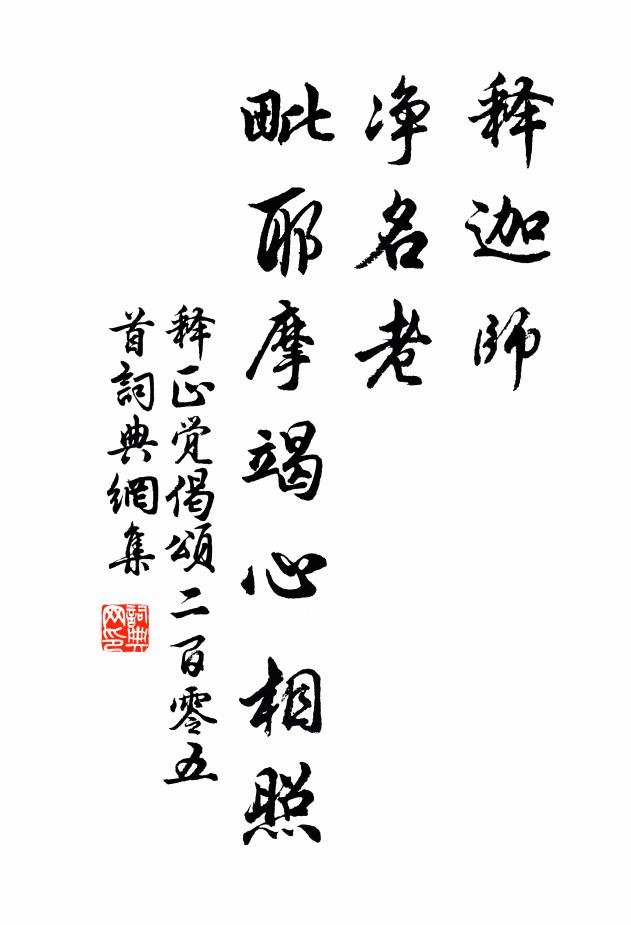 释迦師
净名老
毗耶摩竭心相照
释正觉偈頌二百零五
首詞典網集
詞典
网印